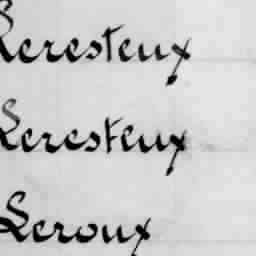 Leresteux
Leresteux
Leroux